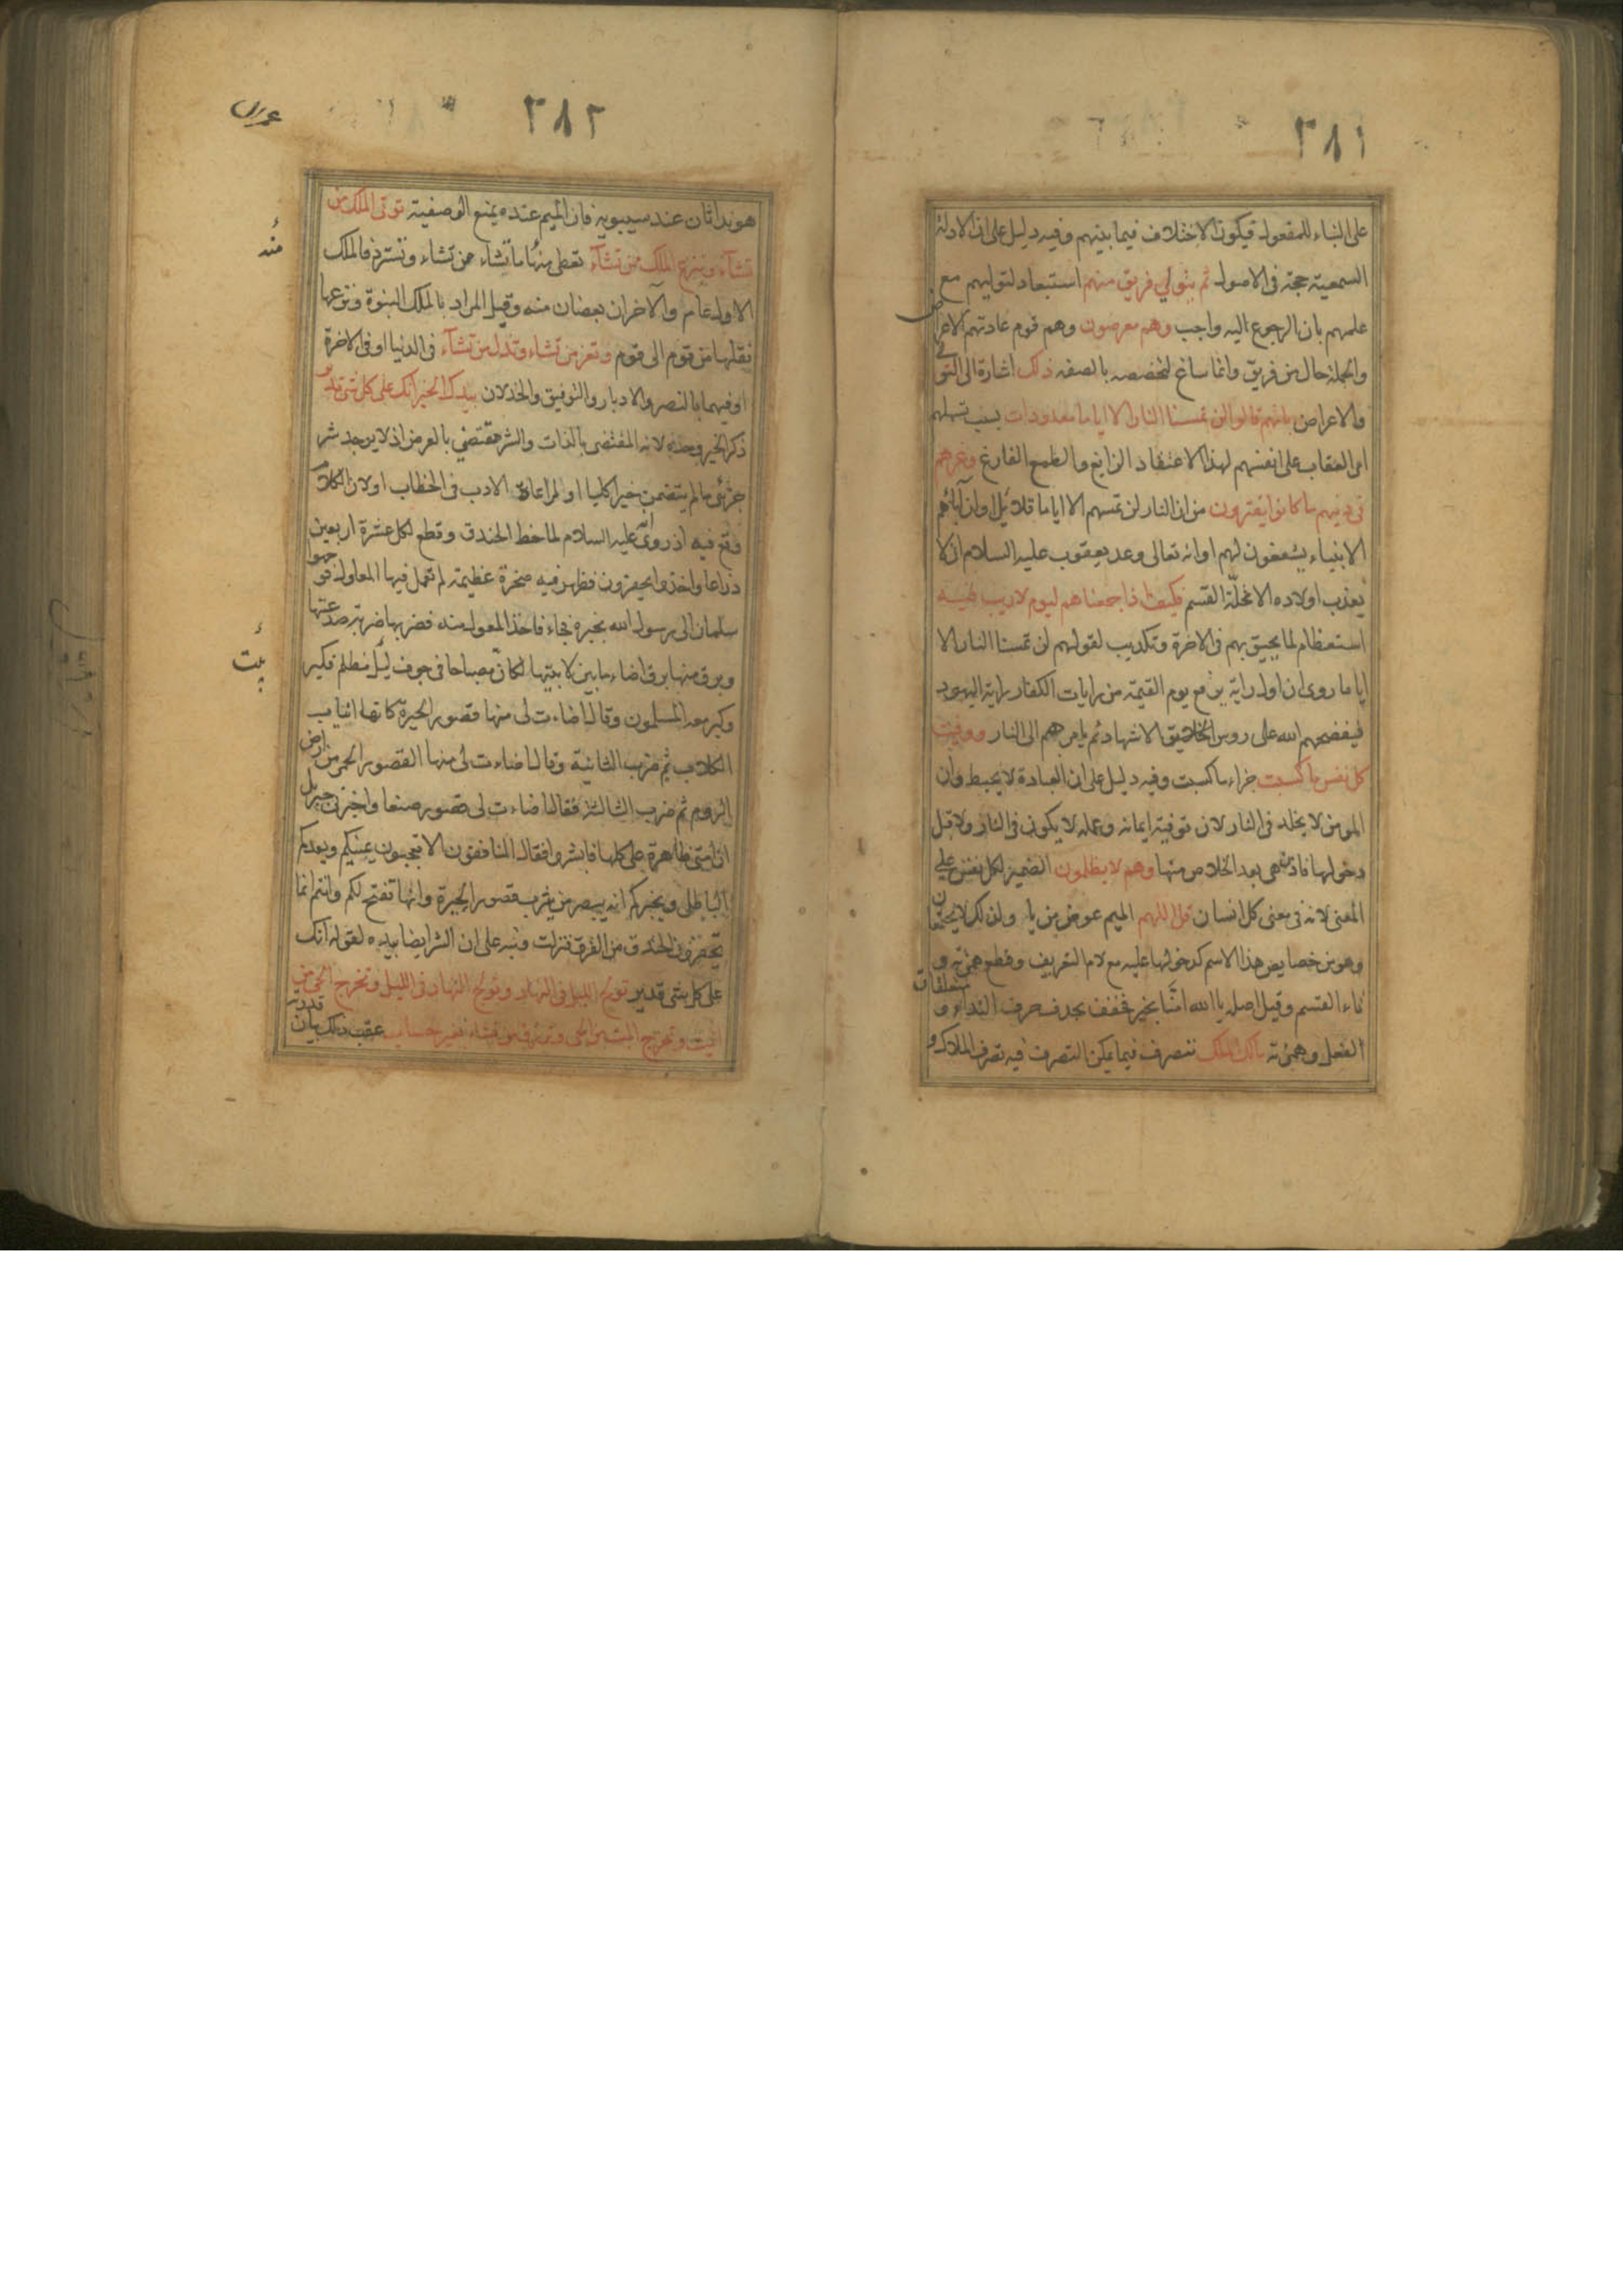 ٢٨١
على البناء للمفعول فيكون الاختلاف فيما بينهم وفيه دليل على ان الادلة
السمعية حجة فى الاصول ثم يتولى فريق منهم استبعاد لتوليهم مع
علمهم بان الرجوع اليه واجب وهم معرضون وهم قوم عادتهم الاعراض
والجملة حال من فريق وانما ساغ لتخصصه بالصفة ذلك اشارة الى التولى
والاعراض بانهم قالوا لن تمسنا النار الا اياما معدودات بسبب تسهلهم
امر العقاب على انفسهم لهذا الاعتقاد الزايغ والطمع الفارغ وغرهم
فى دينهم ما كانوا يفترون من ان النار لن تمسهم الا اياما قلائل او ان آبائهم
الانبياء يشفعون لهم او انه تعالى وعد يعقوب عليه السلام ان لا
يعذب اولاده الا تحلة القسم فكيف اذا جمعناهم ليوم لا ريب فيه
استعظام لما يحيق بهم فى الاخرة وتكذيب لقولهم لن تمسنا النار الا
اياما روى ان اول راية ترفع يوم القيمة من رايات الكفار راية اليهود
فيفضحهم الله على روس الخلايق الاشهاد ثم يامر هم الى النار ووفيت
كل نفس ما كسبت جزاء ما كسبت وفيه دليل على ان العبادة لا يحبط وان
المومن لا يخلد فى النار لان توفية ايمانه وعمله لا يكون فى النار ولا قبل
دخولها فاذن هى بعد الخلاص منها وهم لا يظلمون الضمير لكل نفس على
المعنى لانه فى معنى كل انسان قل اللهم الميم عوض من يا ولذلك لا يجتمعان
وهو من خصايص هذا الاسم كدخولها عليه مع لام التعريف وقطع همزته و
تاء القسم وقيل اصله يا الله امنا بخير فخفف بحذف حرف النداء و متعلقات
الفعل وهمزته مالك الملك تتصرف فيما يمكن التصرف فيه تصرف الملاك و
٢٨٢
هو نداء ثان عند سيبويه فان الميم عنده يمنع الوصفية توتى الملك من
تشآء وتنزع الملك ممن تشآء تعطى منها ما تشاء من تشاء وتسترد فالملك
منه
الاول عام والاخران بعضان منه وقيل المراد بالملك النبوة ونزعها
نقلها من قوم الى قوم وتعز من تشاء وتذل من تشآء فى الدنيا او فى الاخرة
او فيهما بالنصر والادبار والتوفيق والخذلان بيدك الخير انك على كل شى قدير
ذكر الخير وحده لانه المقتضى بالذات والشر مقتضى بالعرض اذ لا يوجد شر
جزئى ما لم يتضمن خيرا كليا او لمراعاة الادب فى الخطاب او لان الكلام
وقع فيه اذ روى انه عليه السلام لما خط الخندق وقطع لكل عشرة اربعين
ذراعا واخذوا يحفرون فظهر فيه صخرة عظيمة لم تعمل فيها المعاول فوجهوا
سلمان الى رسول الله يخبره فجاء فاخذ المعول منه فضربها ضربة صدعتها
وبرق منها برق اضاء ما بين لابتيها لكان مصباحا فى جوف ليل مظلم فكبر
وكبر معه المسلمون وقال اضاءت لى منها قصور الحيرة كانها انياب
الكلاب ثم ضرب الثانية وقال اضاءت لى منها القصور الحمر من ارض
الروم ثم ضرب الثالثة فقال اضاءت لى قصور صنعا واخبرنى جبريل
ان امتى ظاهرة على كلها فابشروا فقال المنافقون الا تعجبون يمنيكم ويعدكم
الباطل ويخبركم انه يبصر من يثرب قصور الحيرة وانها تفتح لكم وانتم انما
تحفرون الخندق من الفرق فنزلت ونبه على ان الشر ايضا بيده لقوله انك
على كل شى قدير تولج الليل فى النهار وتولج النهار فى الليل وتخرج الحى من
الميت وتخرج الميت من الحى وترزق من تشاء بغير حساب عقب ذلك بيان قدرته